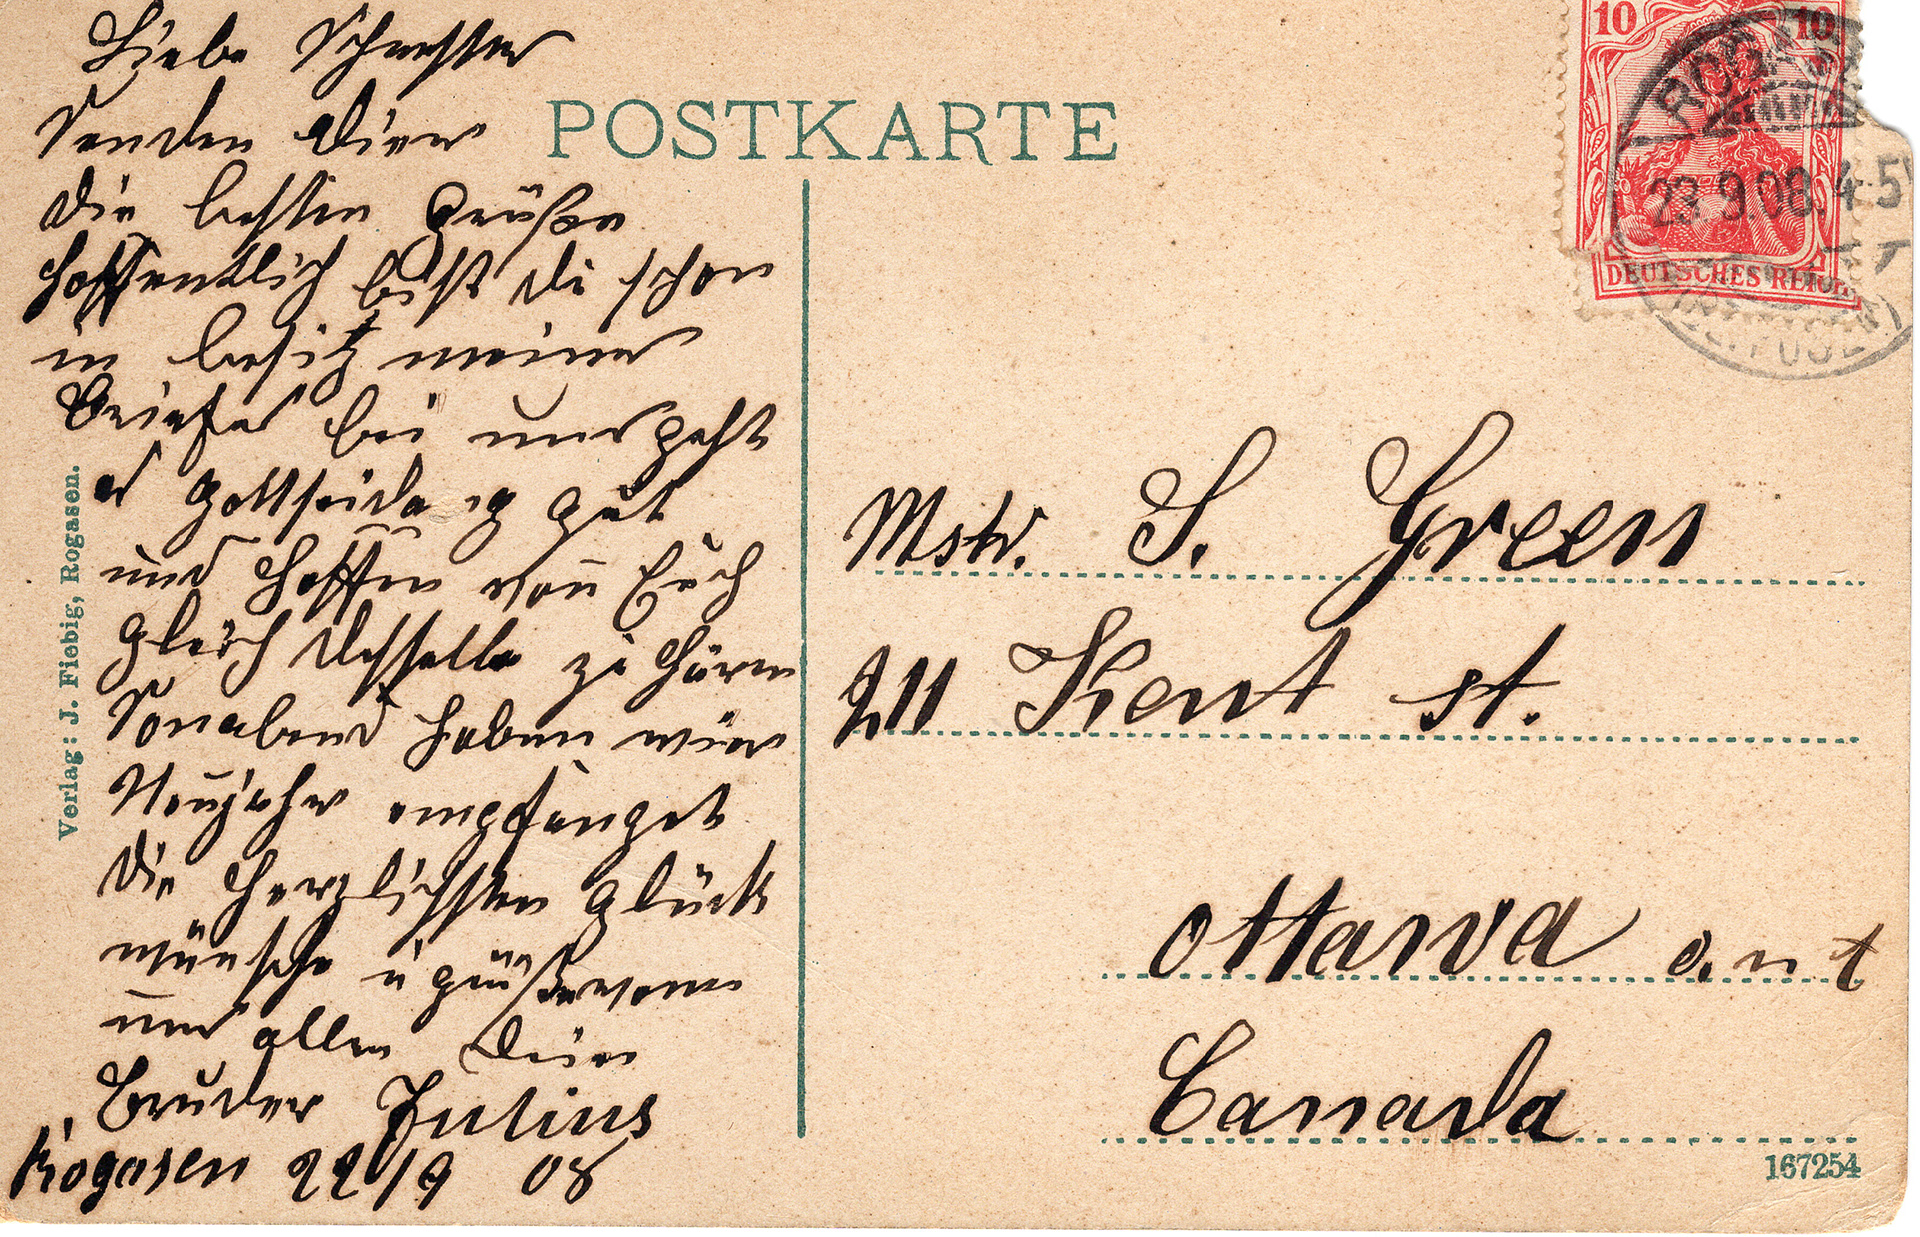 Liebe Schwester
Senden Dier
die besten Grüße
hoffentlich bist du schon
in besitz meiner
Briefes bei uns geht
es Gottseidang gut
und hoffen von Euch
gleich desselbe zu hören
Sonabend haben wier
Neujahr empfanget
die herzlichsten Glück
wünsche u grüße von
uns allen Dein
Bruder Julius
Rogasen 22/9 08
POSTKARTE
Verlag: J. Fiebig, Rogasen.
10 10
DEUTSCHES REICH
23.9.08.4-5
Mstr. S. Green
211 Kent st.
Ottawa o.n t
Canada
167254